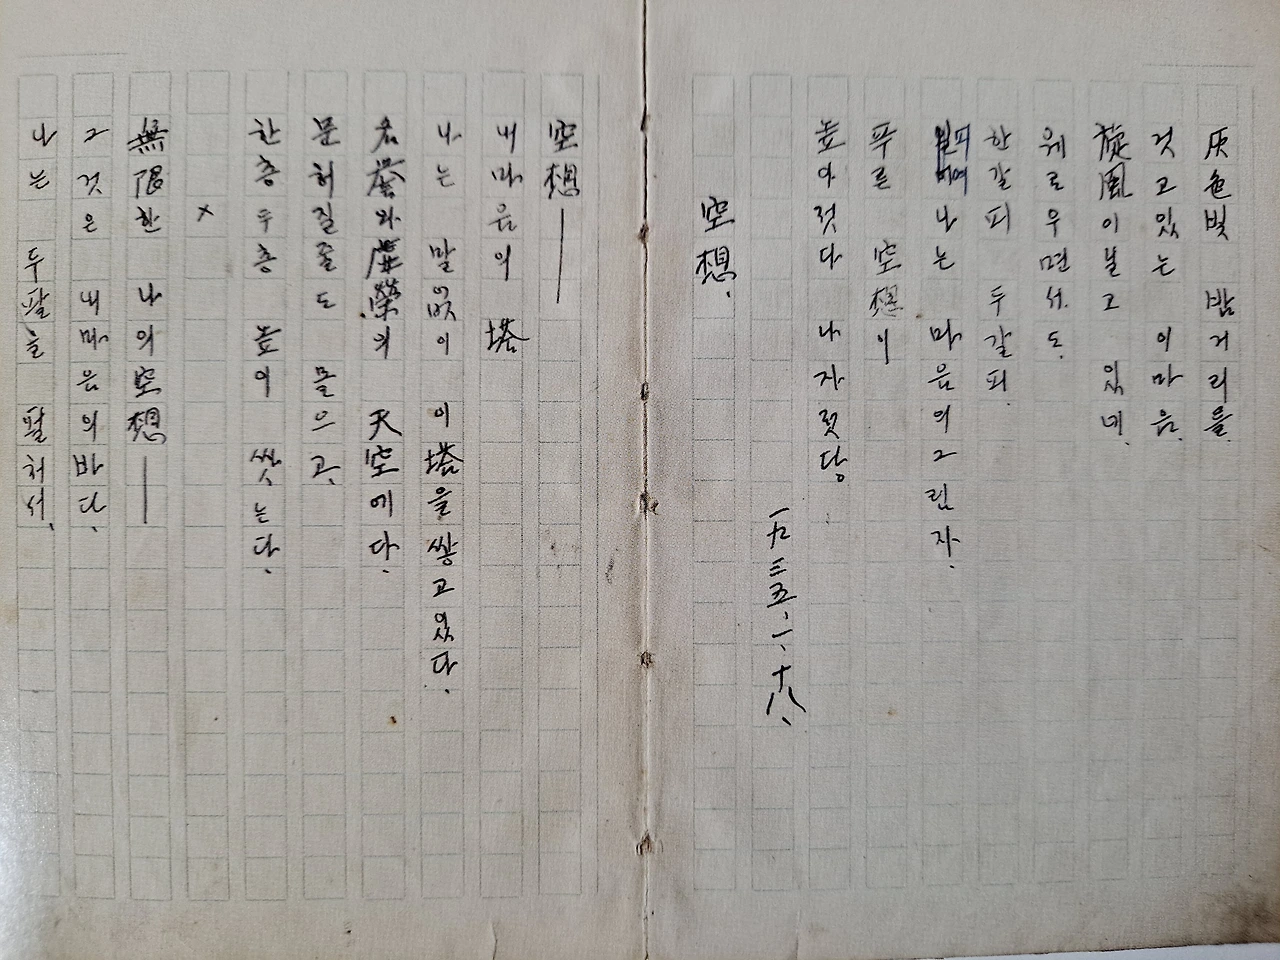 灰色빛 밤거리를.
것고있는 이마음.
旋風이닐고 있네.
웨로우면서도.
한갈피 두갈피.
피여나는 마음의그림자.
푸른 空想이
높아젓다 나자젓다.
一九三五、一、十八、
空想、
空想——
내마음의 塔
나는 말없이 이塔을쌓고있다.
名譽와虛榮의 天空에다.
문허질줄도 몰으고、
한층두층 높이 쌋는다.
×
無限한 나의空想——
그것은 내마음의바다、
나는 두팔을 펼처서、